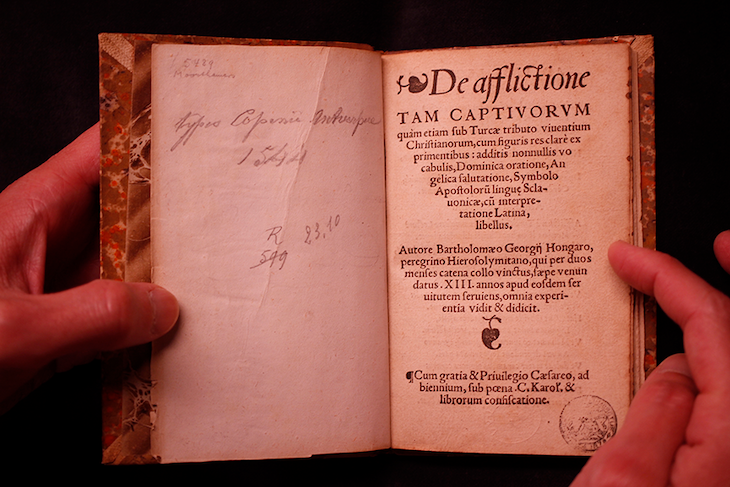 typos Copenii Antverpiae
1544
R 23,10
549
De afflictione
TAM CAPTIVORVM
quàm etiam sub Turcæ tributo viuentium
Christianorum, cum figuris res clarè ex
primentibus: additis nonnullis vo
cabulis, Dominica oratione, An
gelica salutatione, Symbolo
Apostolorū linguę Scla-
uonicæ, cū interpre-
tatione Latina,
libellus.
Autore Bartholomæo Georgij Hongaro,
peregrino Hierosolymitano, qui per duos
menses catena collo vinctus, sæpe venun
datus .XIII. annos apud eosdem ser
uitutem seruiens, omnia experi-
entia vidit & didicit.
¶Cum gratia & Priuilegio Cæsareo, ad
biennium, sub pœna .C. Karol. &
librorum confiscatione.